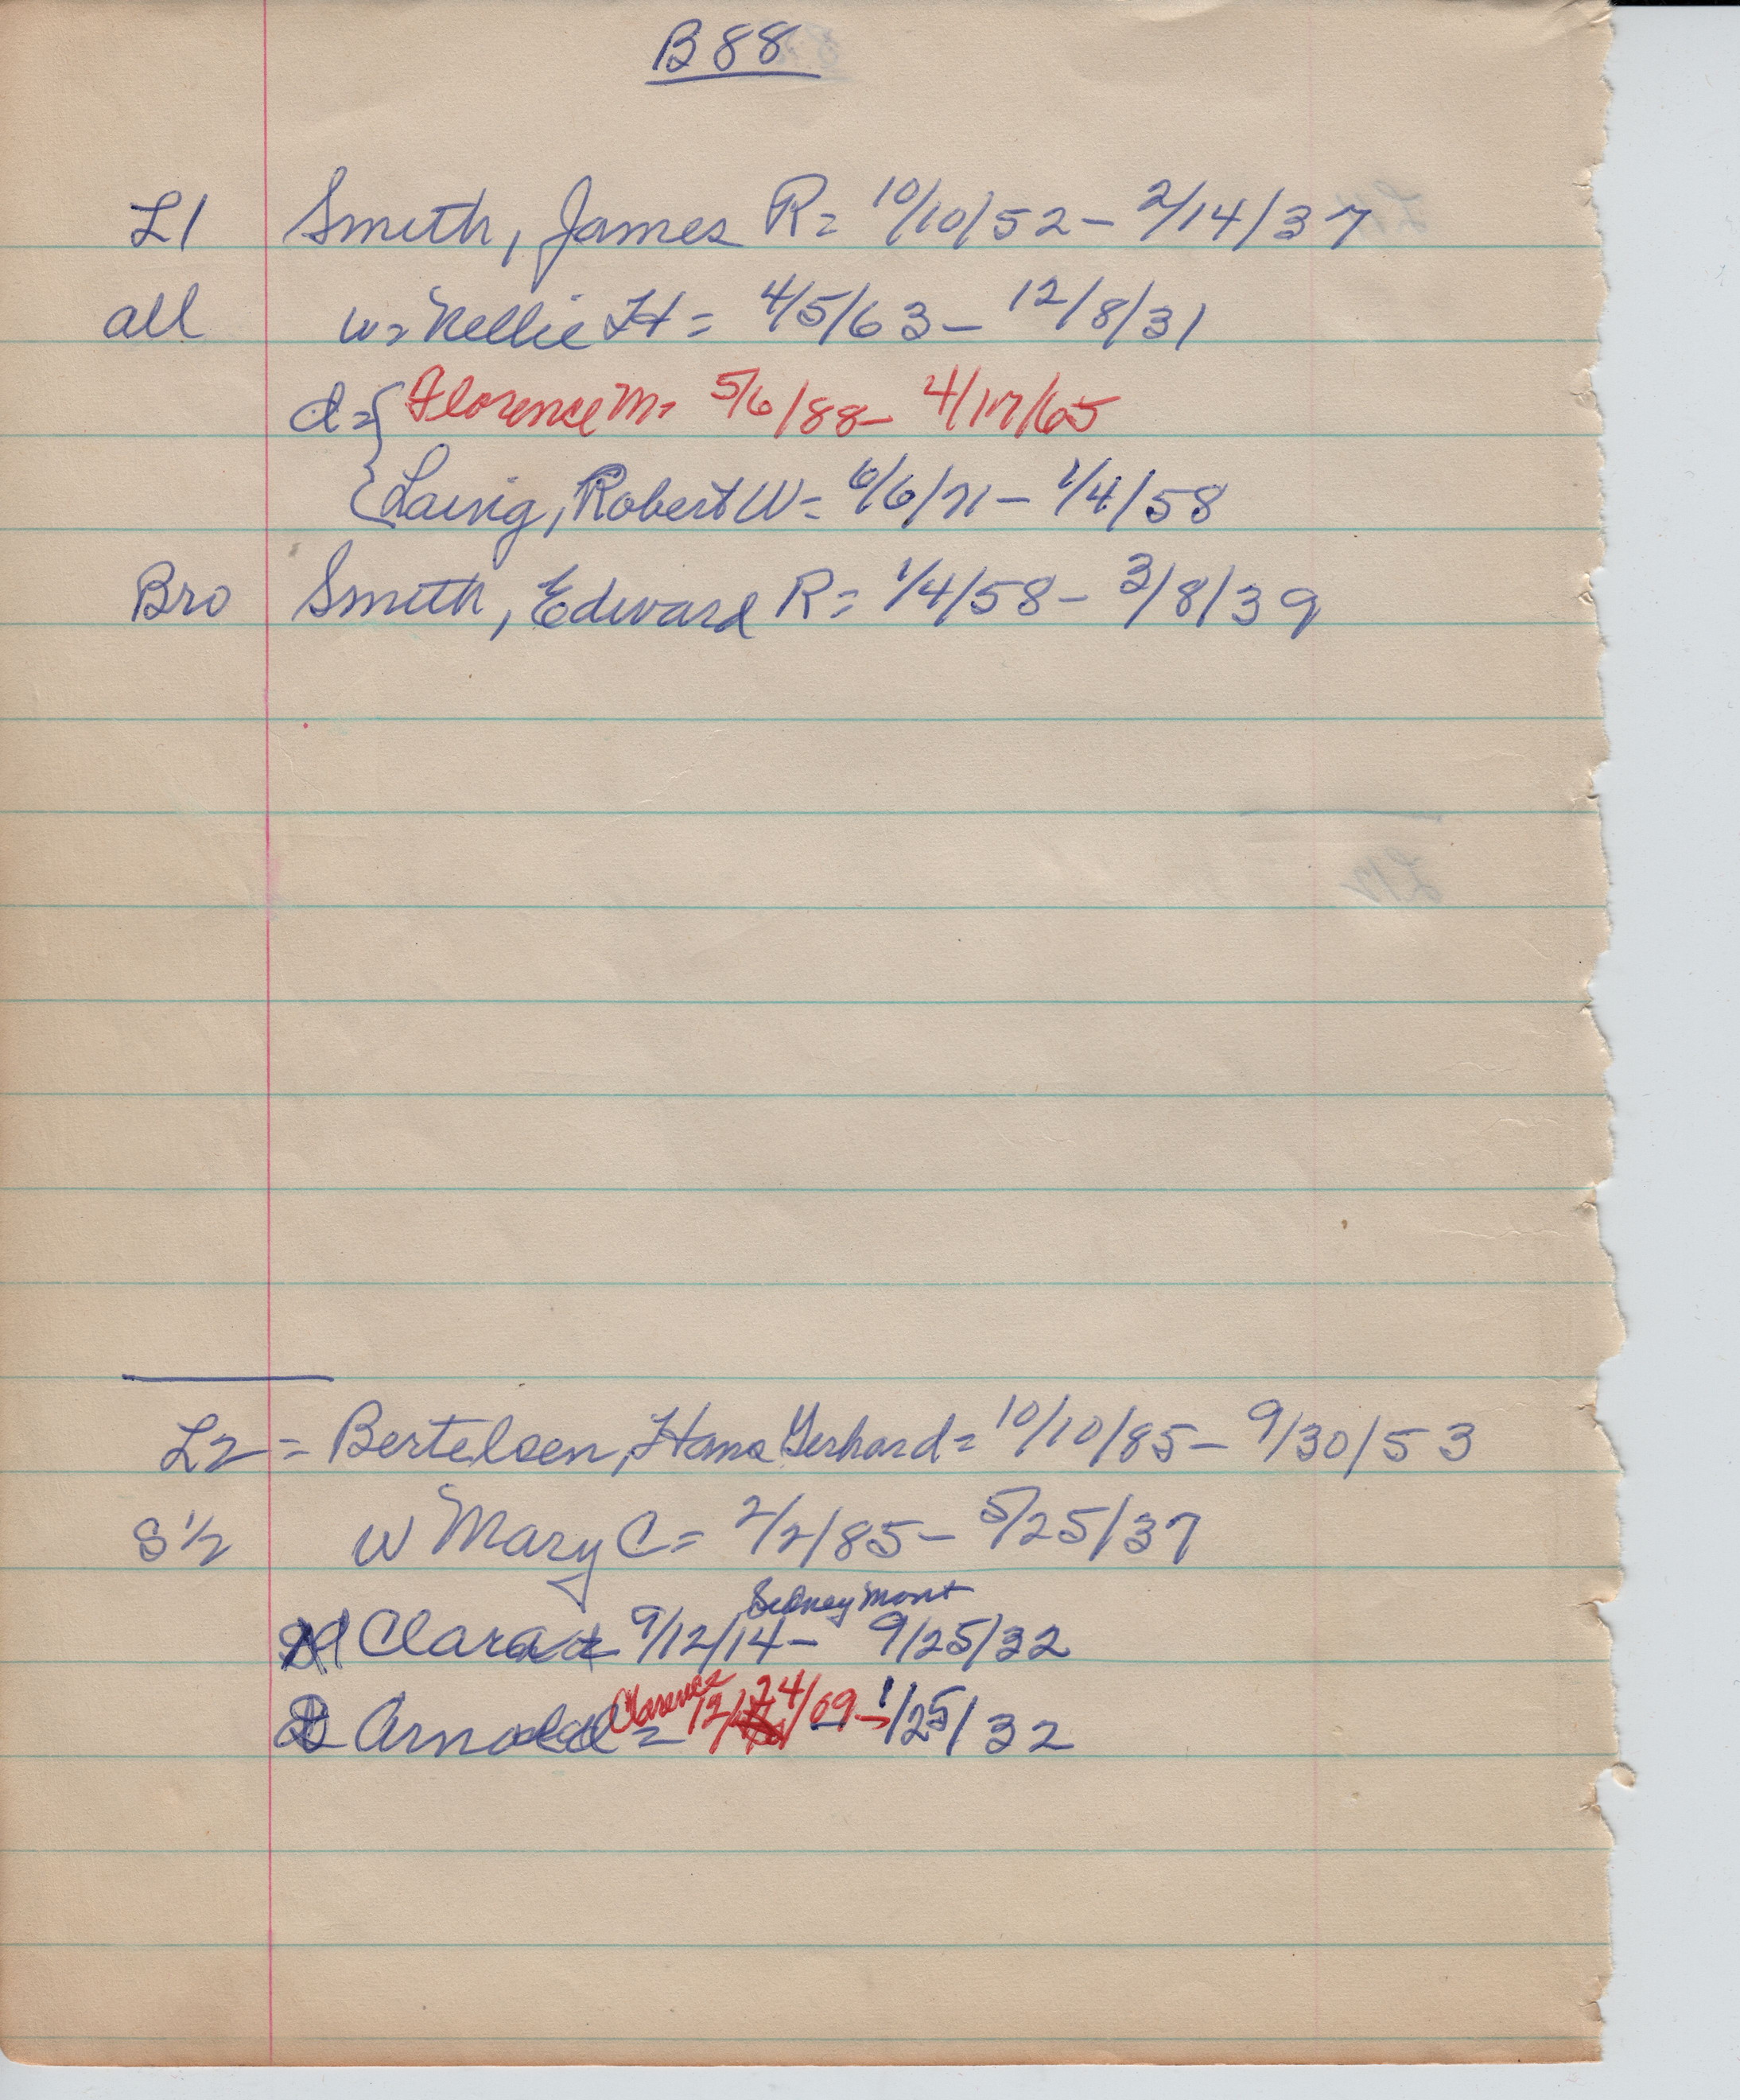 B 88
L1 Smith, James R= 10/10/52 - 2/14/37
all w= Nellie H = 4/5/63 - 12/8/31
d= { Florence M= 5/6/88 - 4/17/65
{ Laing, Robert W= 6/6/71 - 1/4/58
Bro Smith, Edward R= 1/4/58 - 3/8/39
L2 = Bertelsen, Hans Gerhard= 10/10/85 - 9/30/53
S 1/2 w Mary C= 2/2/85 - 5/25/37
Sidney Mont
Clara 9/12/14 - 9/25/32
Arnold Clarence = 12/24/09 - 1/25/32